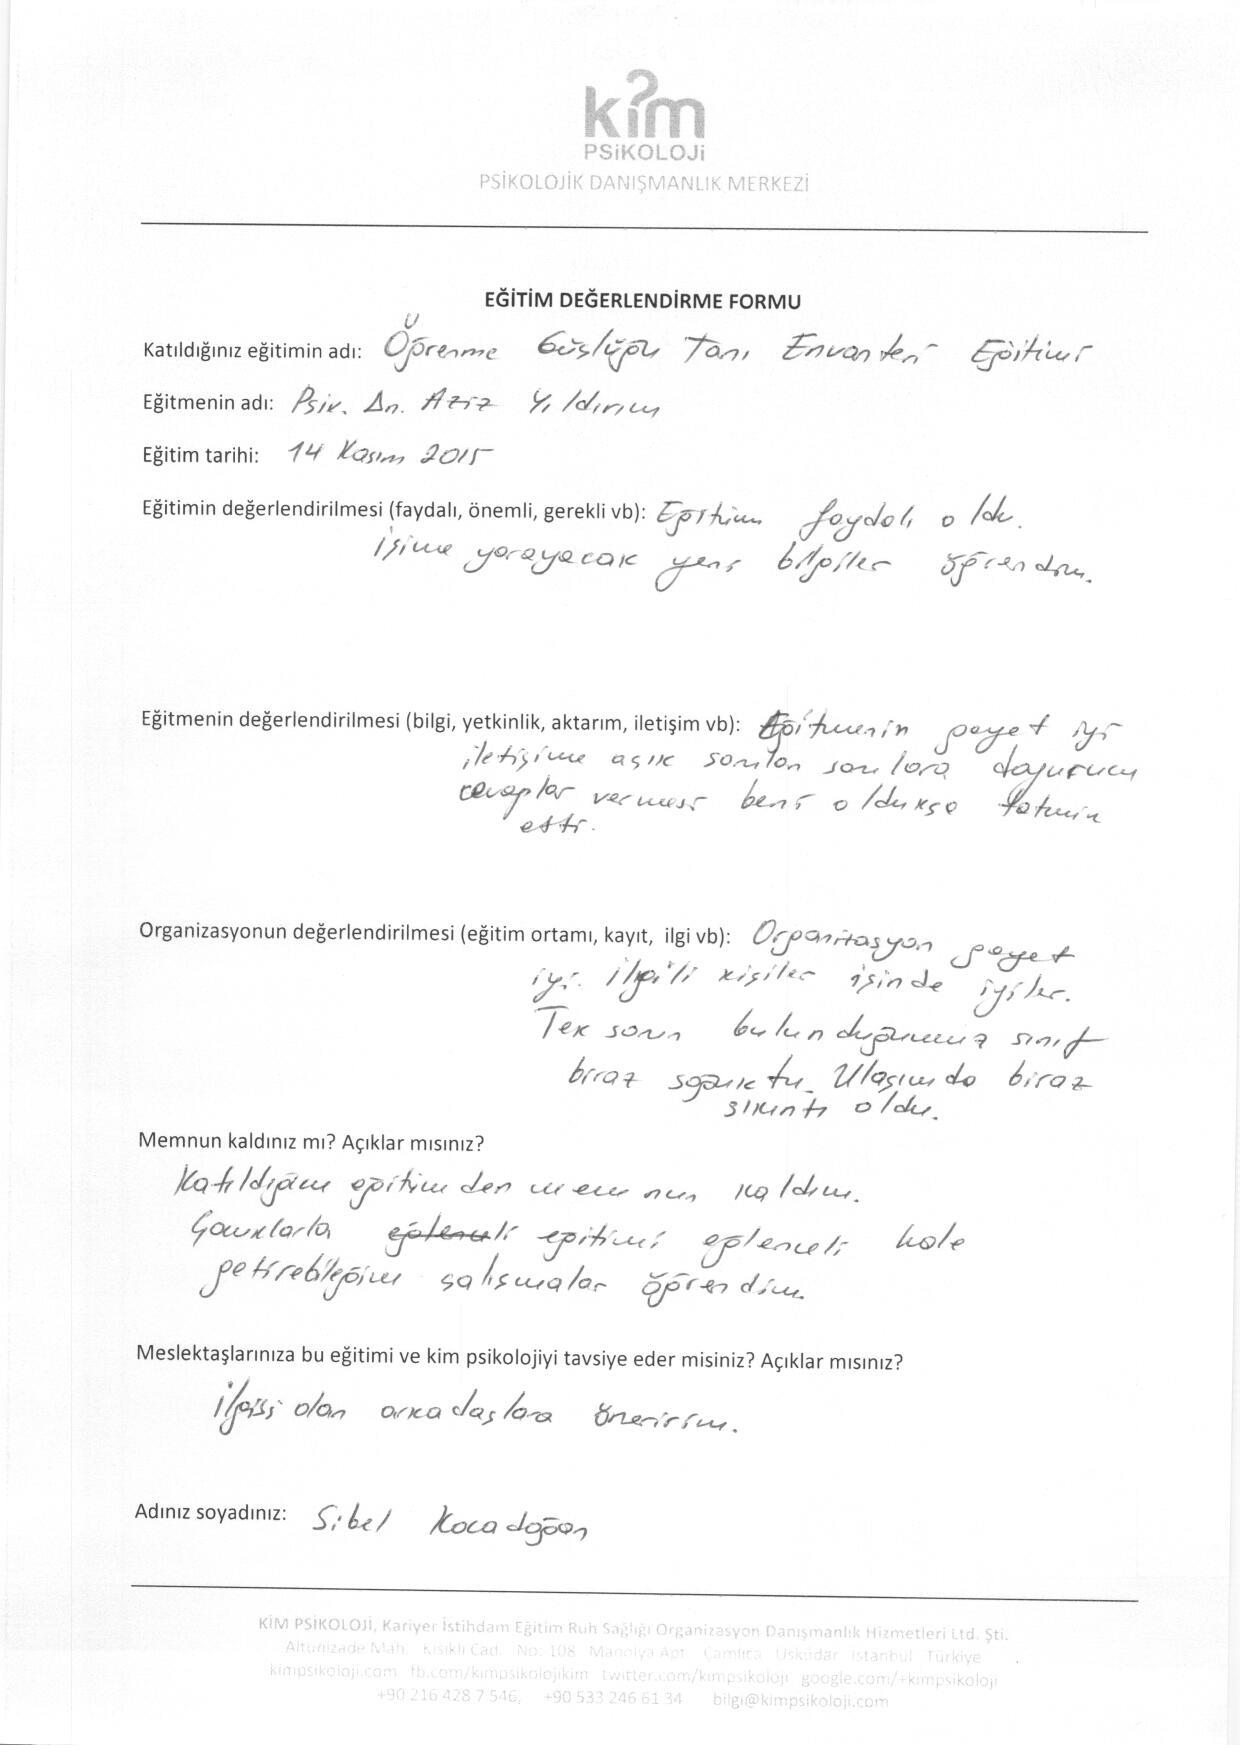 kim
PSİKOLOJİ
PSİKOLOJİK DANIŞMANLIK MERKEZİ
EĞİTİM DEĞERLENDİRME FORMU
Katıldığınız eğitimin adı: Öğrenme Güçlüğü Tanı Envanteri Eğitimi
Eğitmenin adı: Psik. Dn. Aziz Yıldırım
Eğitim tarihi: 14 Kasım 2015
Eğitimin değerlendirilmesi (faydalı, önemli, gerekli vb): Eğitim faydalı oldu.
işime yarayacak yeni bilgiler öğrendim.
Eğitmenin değerlendirilmesi (bilgi, yetkinlik, aktarım, iletişim vb): Eğitmenin gayet iyi
iletişime açık sorulan sorulara doyurucu
cevaplar vermesi beni oldukça tatmin
etti.
Organizasyonun değerlendirilmesi (eğitim ortamı, kayıt, ilgi vb): Organizasyon gayet
iyi. ilgili kişiler işinde iyiler.
Tek sorun bulunduğumuz sınıf
biraz soğuktu. Ulaşımda biraz
sıkıntı oldu.
Memnun kaldınız mı? Açıklar mısınız?
Katıldığım eğitimden memnun kaldım.
Çocuklarla eğlenceli eğitimi eğlenceli hale
getirebileğim çalışmalar öğrendim.
Meslektaşlarınıza bu eğitimi ve kim psikolojiyi tavsiye eder misiniz? Açıklar mısınız?
ilgisi olan arkadaşlara öneririm.
Adınız soyadınız: Sibel Kocadoğan
KİM PSİKOLOJİ, Kariyer İstihdam Eğitim Ruh Sağlığı Organizasyon Danışmanlık Hizmetleri Ltd. Şti.
Altunizade Mah. Kısıklı Cad. No: 108 Manolya Apt. Çamlıca Üsküdar İstanbul Türkiye
kimpsikoloji.com fb.com/kimpsikolojikim twitter.com/kimpsikoloji google.com/+kimpsikoloji
+90 216 428 7 546, +90 533 246 61 34 bilgi@kimpsikoloji.com